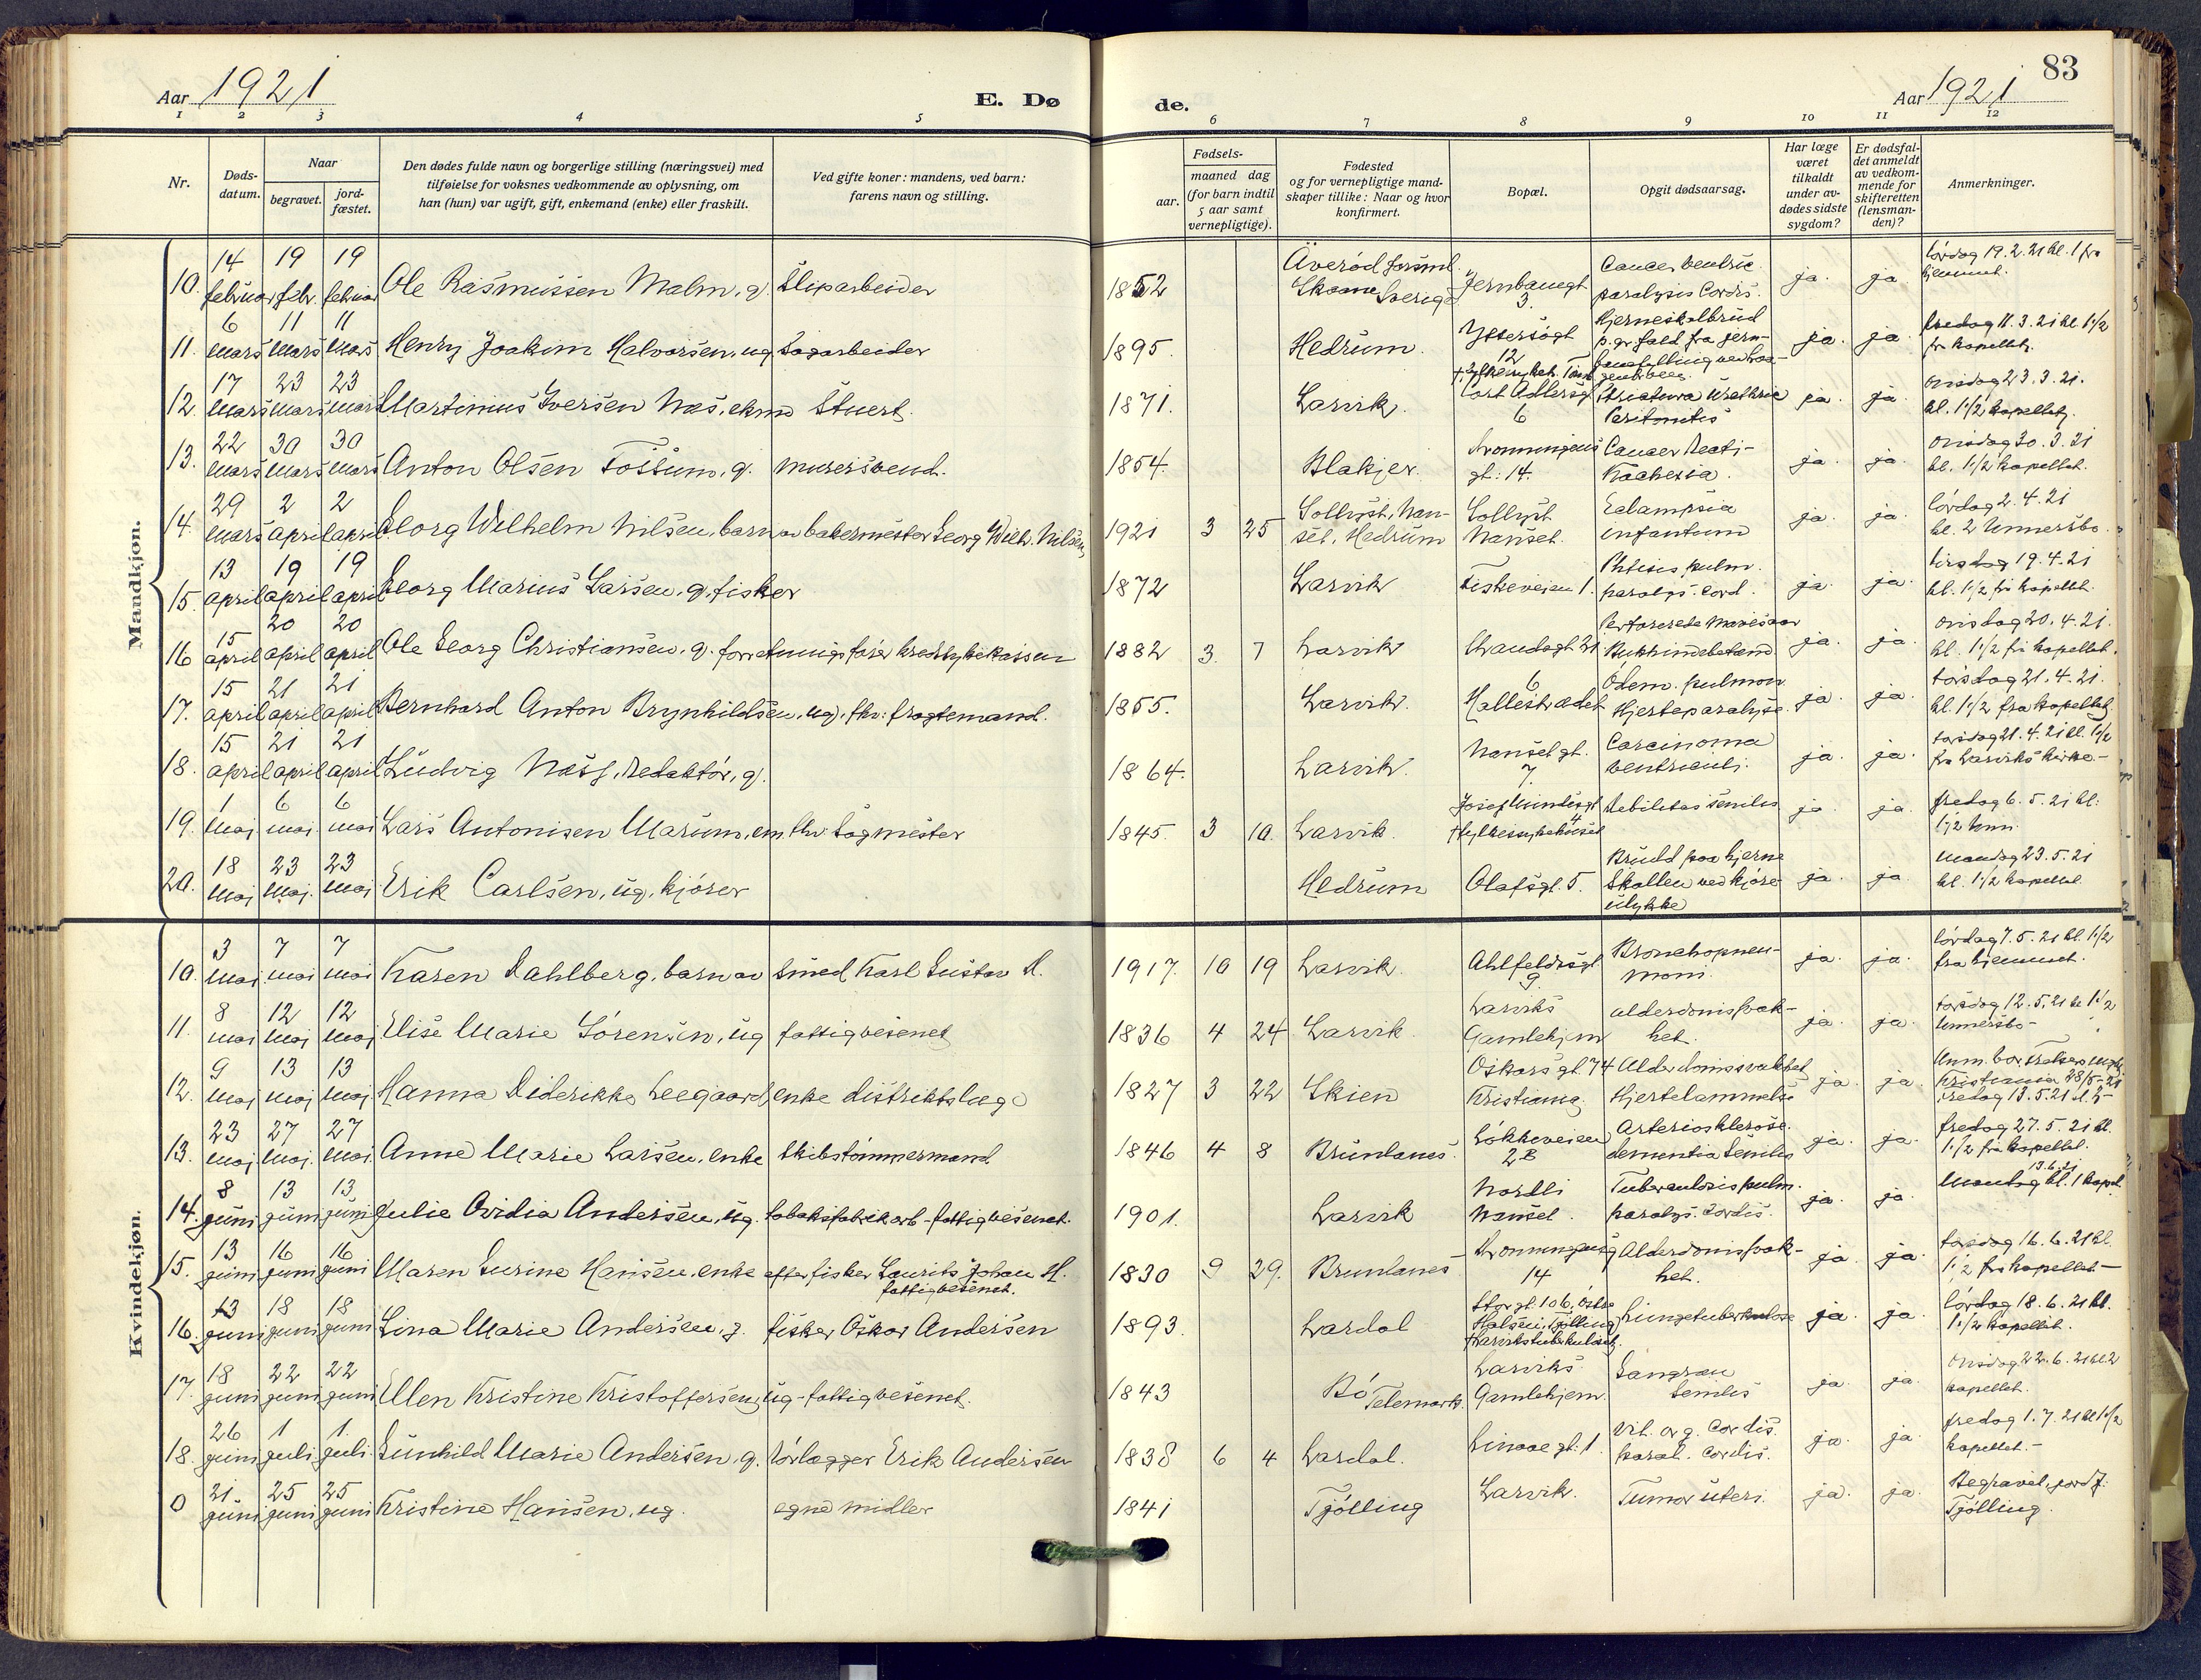 Aar 1921
E. Dø
de.
Aar 1921
83
1 2 3 4 5 6 7 8 9 10 11 12
Nr.
Døds-
datum.
Naar
begravet.
jord-
fæstet.
Den dødes fulde navn og borgerlige stilling (næringsvei) med
tilføielse for voksnes vedkommende av oplysning, om
han (hun) var ugift, gift, enkemand (enke) eller fraskilt.
Ved gifte koner: mandens, ved barn:
farens navn og stilling.
Fødsels-
aar.
maaned dag
(for barn indtil
5 aar samt
vernepligtige).
Fødested
og for vernepligtige mand-
skaper tillike: Naar og hvor
konfirmert.
Bopæl.
Opgit dødsaarsag.
Har læge
været
tilkaldt
under av-
dødes sidste
sygdom?
Er dødsfal-
det anmeldt
av vedkom-
mende for
skifteretten
(lensman-
den)?
Anmerkninger.
Mandkjøn.
10. 14 februar 19 febr. 19 februar Ole Rasmussen Malm, g. Sliparbeider 1852 Skaane Sverige Jernbanegt 3. Cancer ventric. paralysis Cordis. ja. ja. lørdag 19.2.21 kl. 1 fra hjemmet.
11. 6 mars 11 mars 11 mars Henry Joakim Halvorsen, ug. Sagarbeider 1895. Hedrum. 12 Hjerneskalbrud p.gr. fald fra jern- ja. ja. fredag 11.3.21 kl. 1 1/2 fr kapellet.
12. 17 mars 23 mars 23 mars Martinius Iversen Næs, ekm Stuert. 1871. Larvik. Tort Adlersgt 6 Strictura Urethrae Peritonitis ja. ja. onsdag 23.3.21. kl. 1 1/2 kapellet.
13. 22 mars 30 mars 30 mars Anton Olsen Fossum, g. murersvend. 1854. Blakjer. Dronningens gt: 14. Cancer Recti- Kachexia. ja. ja. onsdag 30.3.21 kl. 1 1/2 kapellet.
14. 29 mars 2 april 2 april Georg Wilhelm Nilsen, barn av bakermester Georg Wilh. Nilsen, 1921 3 25 Sollyst, Nan- set, Hedrum Sollyst Nanset. Eclampsia infantum ja. ja. lørdag 2.4.21 kl. 2 Unnersbo.
15. 13 april 19 april 19 april Georg Marius Larsen, g. fisker 1872 Larvik Fiskeveien 1. Phtisis pulm. paralys. Cord. ja. ja. tirsdag 19.4.21 kl. 1 1/2 fr kapellet.
16 15 april 20 april 20 april Ole Georg Christiansen, g. forretningsfører kredssykekassen 1882 3. 7 Larvik Strandgt 21 Perforerede Mavesaar Bukhindebetænd. ja. ja. onsdag 20.4.21. kl. 1 1/2 fr kapellet.
17. 15 april 21 april 21 april Bernhard Anton Brynhildsen, ug., fhv: fragtemand. 1855. Larvik. 6 Mallestrædet Ødem. pulmon Hjerteparalyse. ja. ja. torsdag 21.4.21. kl. 1 1/2 fra kapellet
18. 15 april 21 april 21 april Ludvig Næss, Redaktør, g. 1864. Larvik. Nansetgt. 7. Carcinoma ventriculi. ja. ja. torsdag 21.4.21 kl. 1 1/2 fra Larviks kirke.-
19. 1 maj 6 maj. 6 maj Lars Antonisen Marum, em fhv: Sagmester 1845. 3 10. Larvik. †Fylkessykehuset Debilitas senilis ja. ja. fredag 6.5.21 kl: 1 1/2 Unn.
20. 18 maj 23 maj. 23 maj Erik Carlsen, ug, kjører Hedrum Olafsgt. 5. Brudd paa hjerne Skallen ved kjøre ulykke ja. ja. mandag 23.5.21 kl. 1 1/2 kapellet.
Kvindekjøn.
10. 3 maj 7 maj 7 maj Karen Dahlberg, barn av smed Karl Gustav D. 1917. 10 19 Larvik. Ahlfeldtsgt 9 Bronchopneu- moni. ja. ja. lørdag 7.5.21 kl. 1 1/2 fra hjemmet.
11. 8 maj 12 maj 12 maj Elise Marie Sørensen, ug fattigvesenet 1836 4 24 Larvik. Larviks Gamlehjem alderdomssvak- het. ja. ja. torsdag 12.5.21 kl 1 1/2 Unnersbo-
12. 9 maj 13 maj 13 maj Hanna Diderikke Leegaard, enke distriktslæge 1827 3 22 Skien Oskarsgt. 74 Kristiania. Alderdomssvakhet Hjertelammelse ja. ja. Kristiania 28/5-21 fredag 13.5.21 kl. 2-
13. 23 maj 27 maj. 27 maj. Anne Marie Larsen, enke Skibstømmermand. 1846 4 8 Brunlanes. Løkkeveien 2B Arteriosklerose. dementia Senilis ja. ja. fredag 27.5.21 kl. 1 1/2 fra kapellet.
14. 8 juni 13 juni 13 juni Julie Ovidia Andersen, ug. tabaksfabrikarb- fattigvesenet. 1901. Larvik Nordli Nanset. Tuberculosis pulm. paralys. Cordis. ja. ja. 13.6.21 Mandag kl. 1 kapel.
15. 13 juni 16 juni 16 juni Maren Gurine Hansen, enke efter fisker Laurits Johan H. fattigvesenet. 1830 9 29. Brunlanes 14 Alderdomssvak- het. ja. ja. torsdag 16.6.21 kl. 1 1/2 fra kapellet-
16. 13 juni 18 juni 18 juni Lina Marie Andersen, g. fisker Oskar Andersen 1893. Lardal Storgt. 106, Østre Halsen, Tjølling †Larviks tuberkulosehj. Lungetuberkulose ja. ja. lørdag 18.6.21 kl. 1 1/2 kapellet.
17. 18 juni 22 juni 22 juni Ellen Kristine Kristoffersen, ug- fattigvesenet. 1843 Bø Telemark. Larviks Gamlehjem. Gangræn Senilis ja. ja. onsdag 22.6.21 kl 2 kapellet.
18. 26 juni 1 juli 1. juli. Gunhild Marie Andersen, g. rørlægger Erik Andersen 1838 6 4 Lardal. Linaaegt: 1. Vit. org. Cordis. paral. Cordis. ja. ja. fredag 1.7.21 kl 1 1/2 kapellet.-
0 21 juni 25 juni 25 juni Kristine Hansen, ug. egne midler 1841 Tjølling Larvik. Tumor uteri. ja. ja. Begravet, jordf. Tjølling.